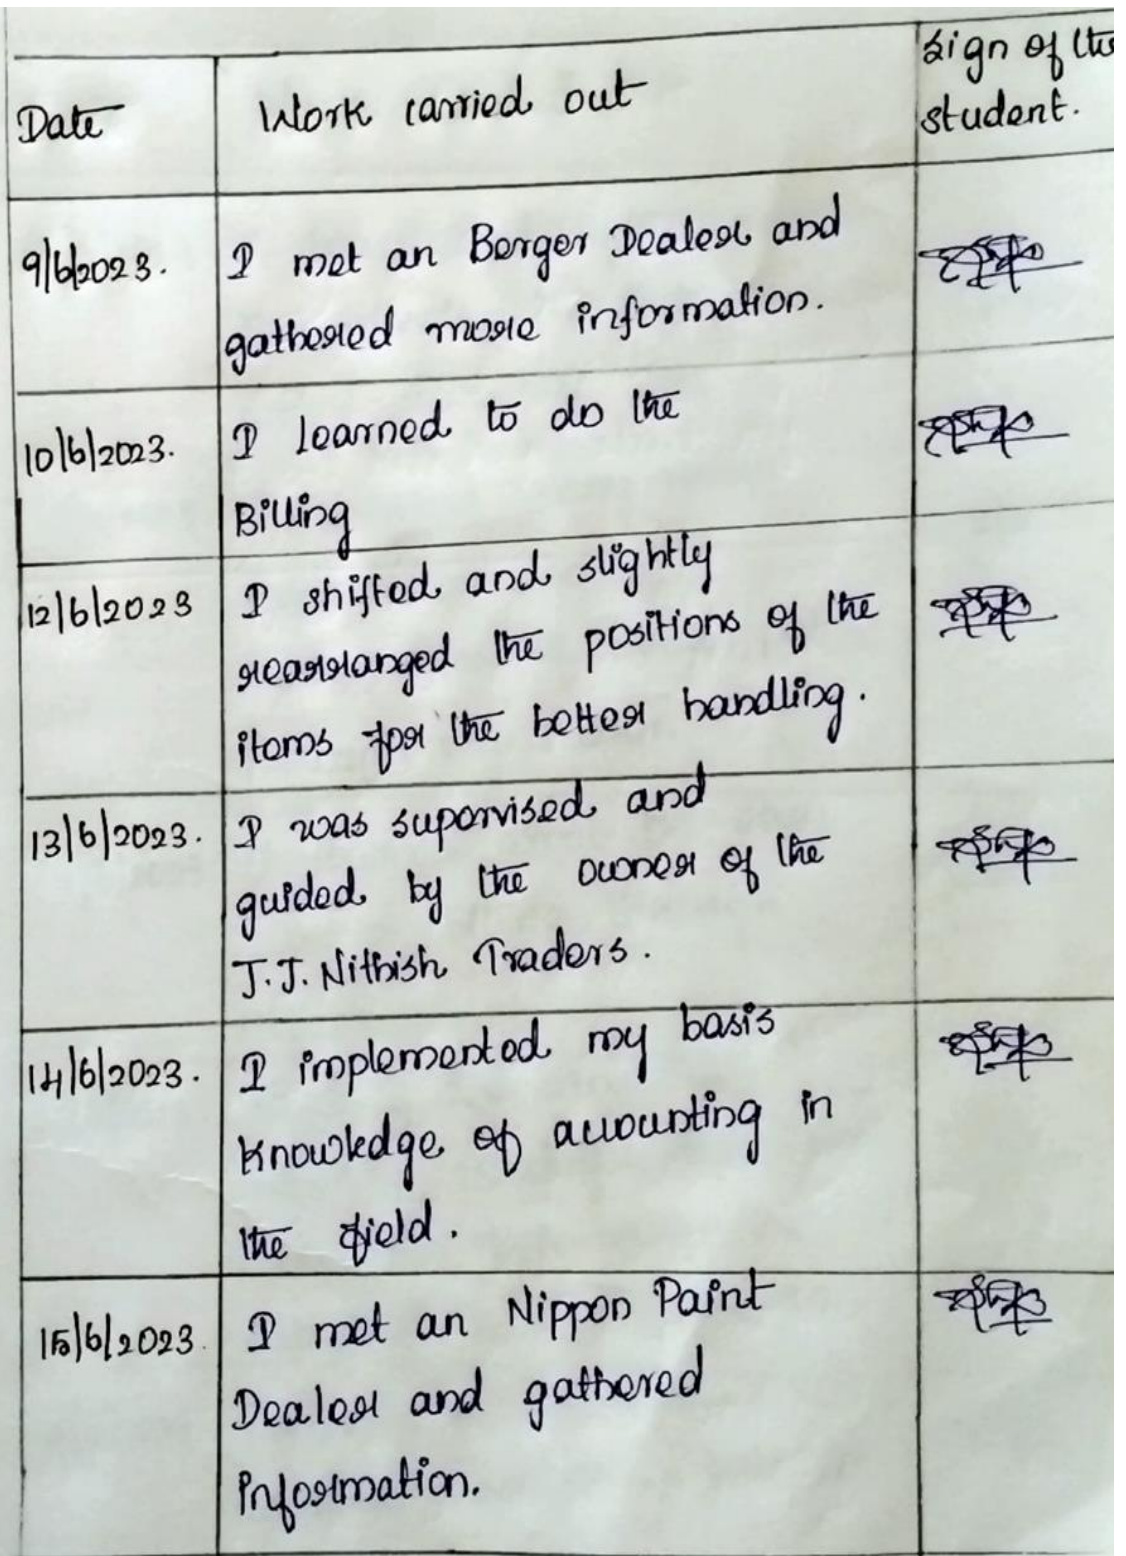 Sign of the
Date Work carried out student.
9/6/2023. I met an Berger Dealer and
gathered more information.
10/6/2023. I learned to do the
Billing
12/6/2023 I shifted and slightly
rearranged the positions of the
items for the better handling.
13/6/2023. I was supervised and
guided by the owner of the
J.J. Nithish Traders.
14/6/2023. I implemented my basis
knowledge of accounting in
the field.
15/6/2023. I met an Nippon Paint
Dealer and gathered
Information.